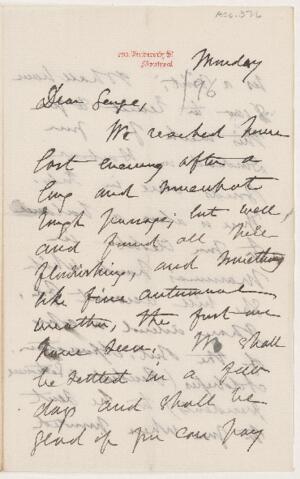 University St
Montreal
Monday
Dear George,
We reached home
last evening after a
long and somewhat
rough passage; but well
and found all here
flourishing, and something
like fine autumnal
weather, the first we
have seen. We shall
be settled in a few
days and shall be
glad if you can pay